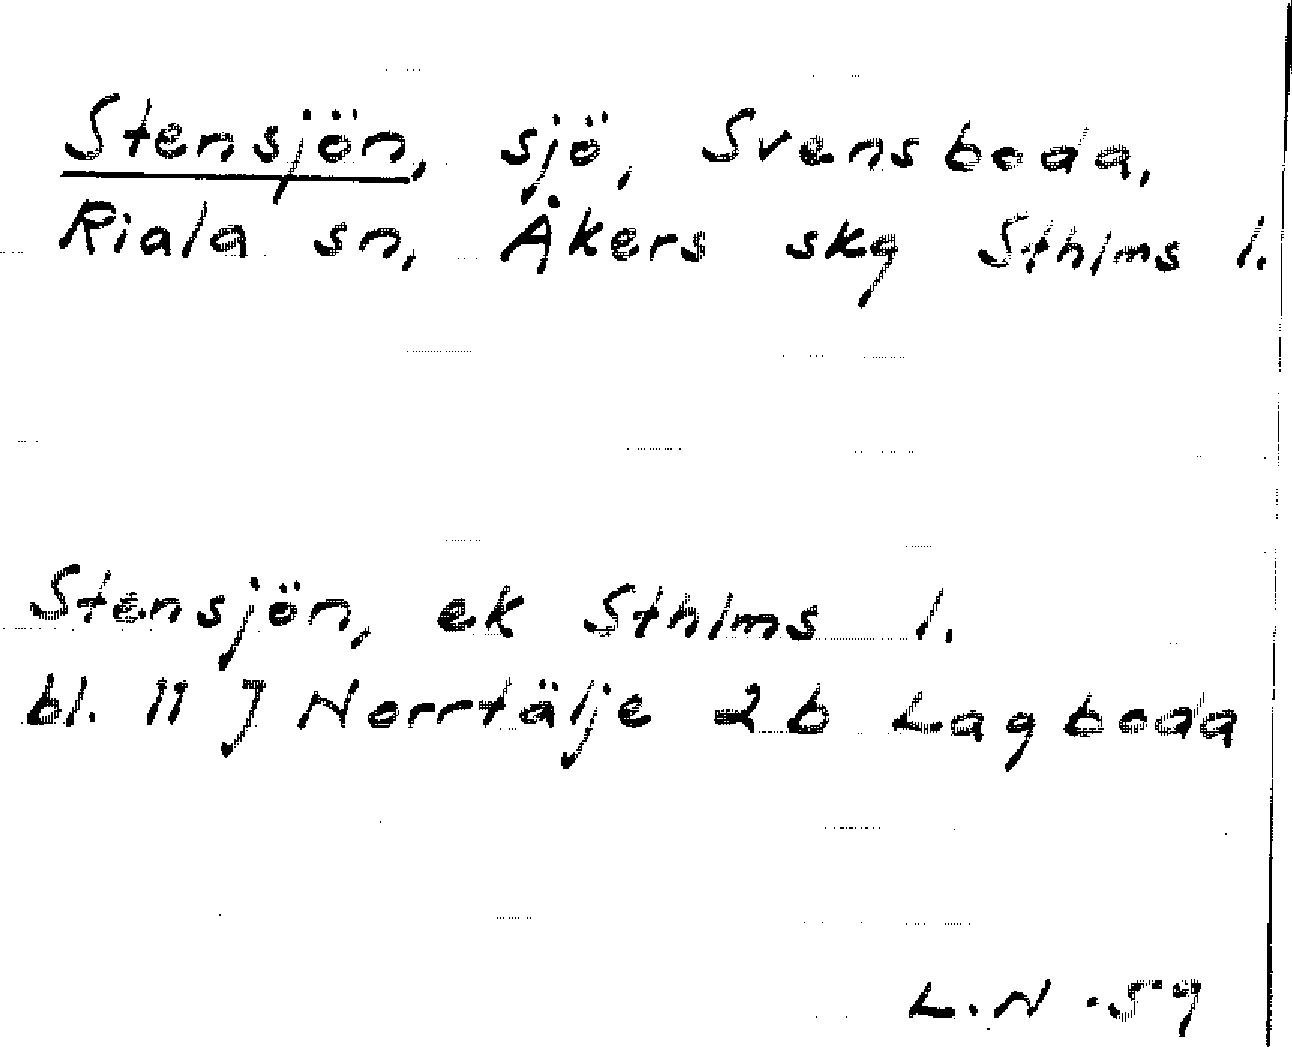 Stensjön, sjö, Svensboda,
Riala sn, Åkers skg Sthlms l.
Stensjön, ek Sthlms l.
bl. 11 J Norrtälje 2b Lagboda
L.N -59